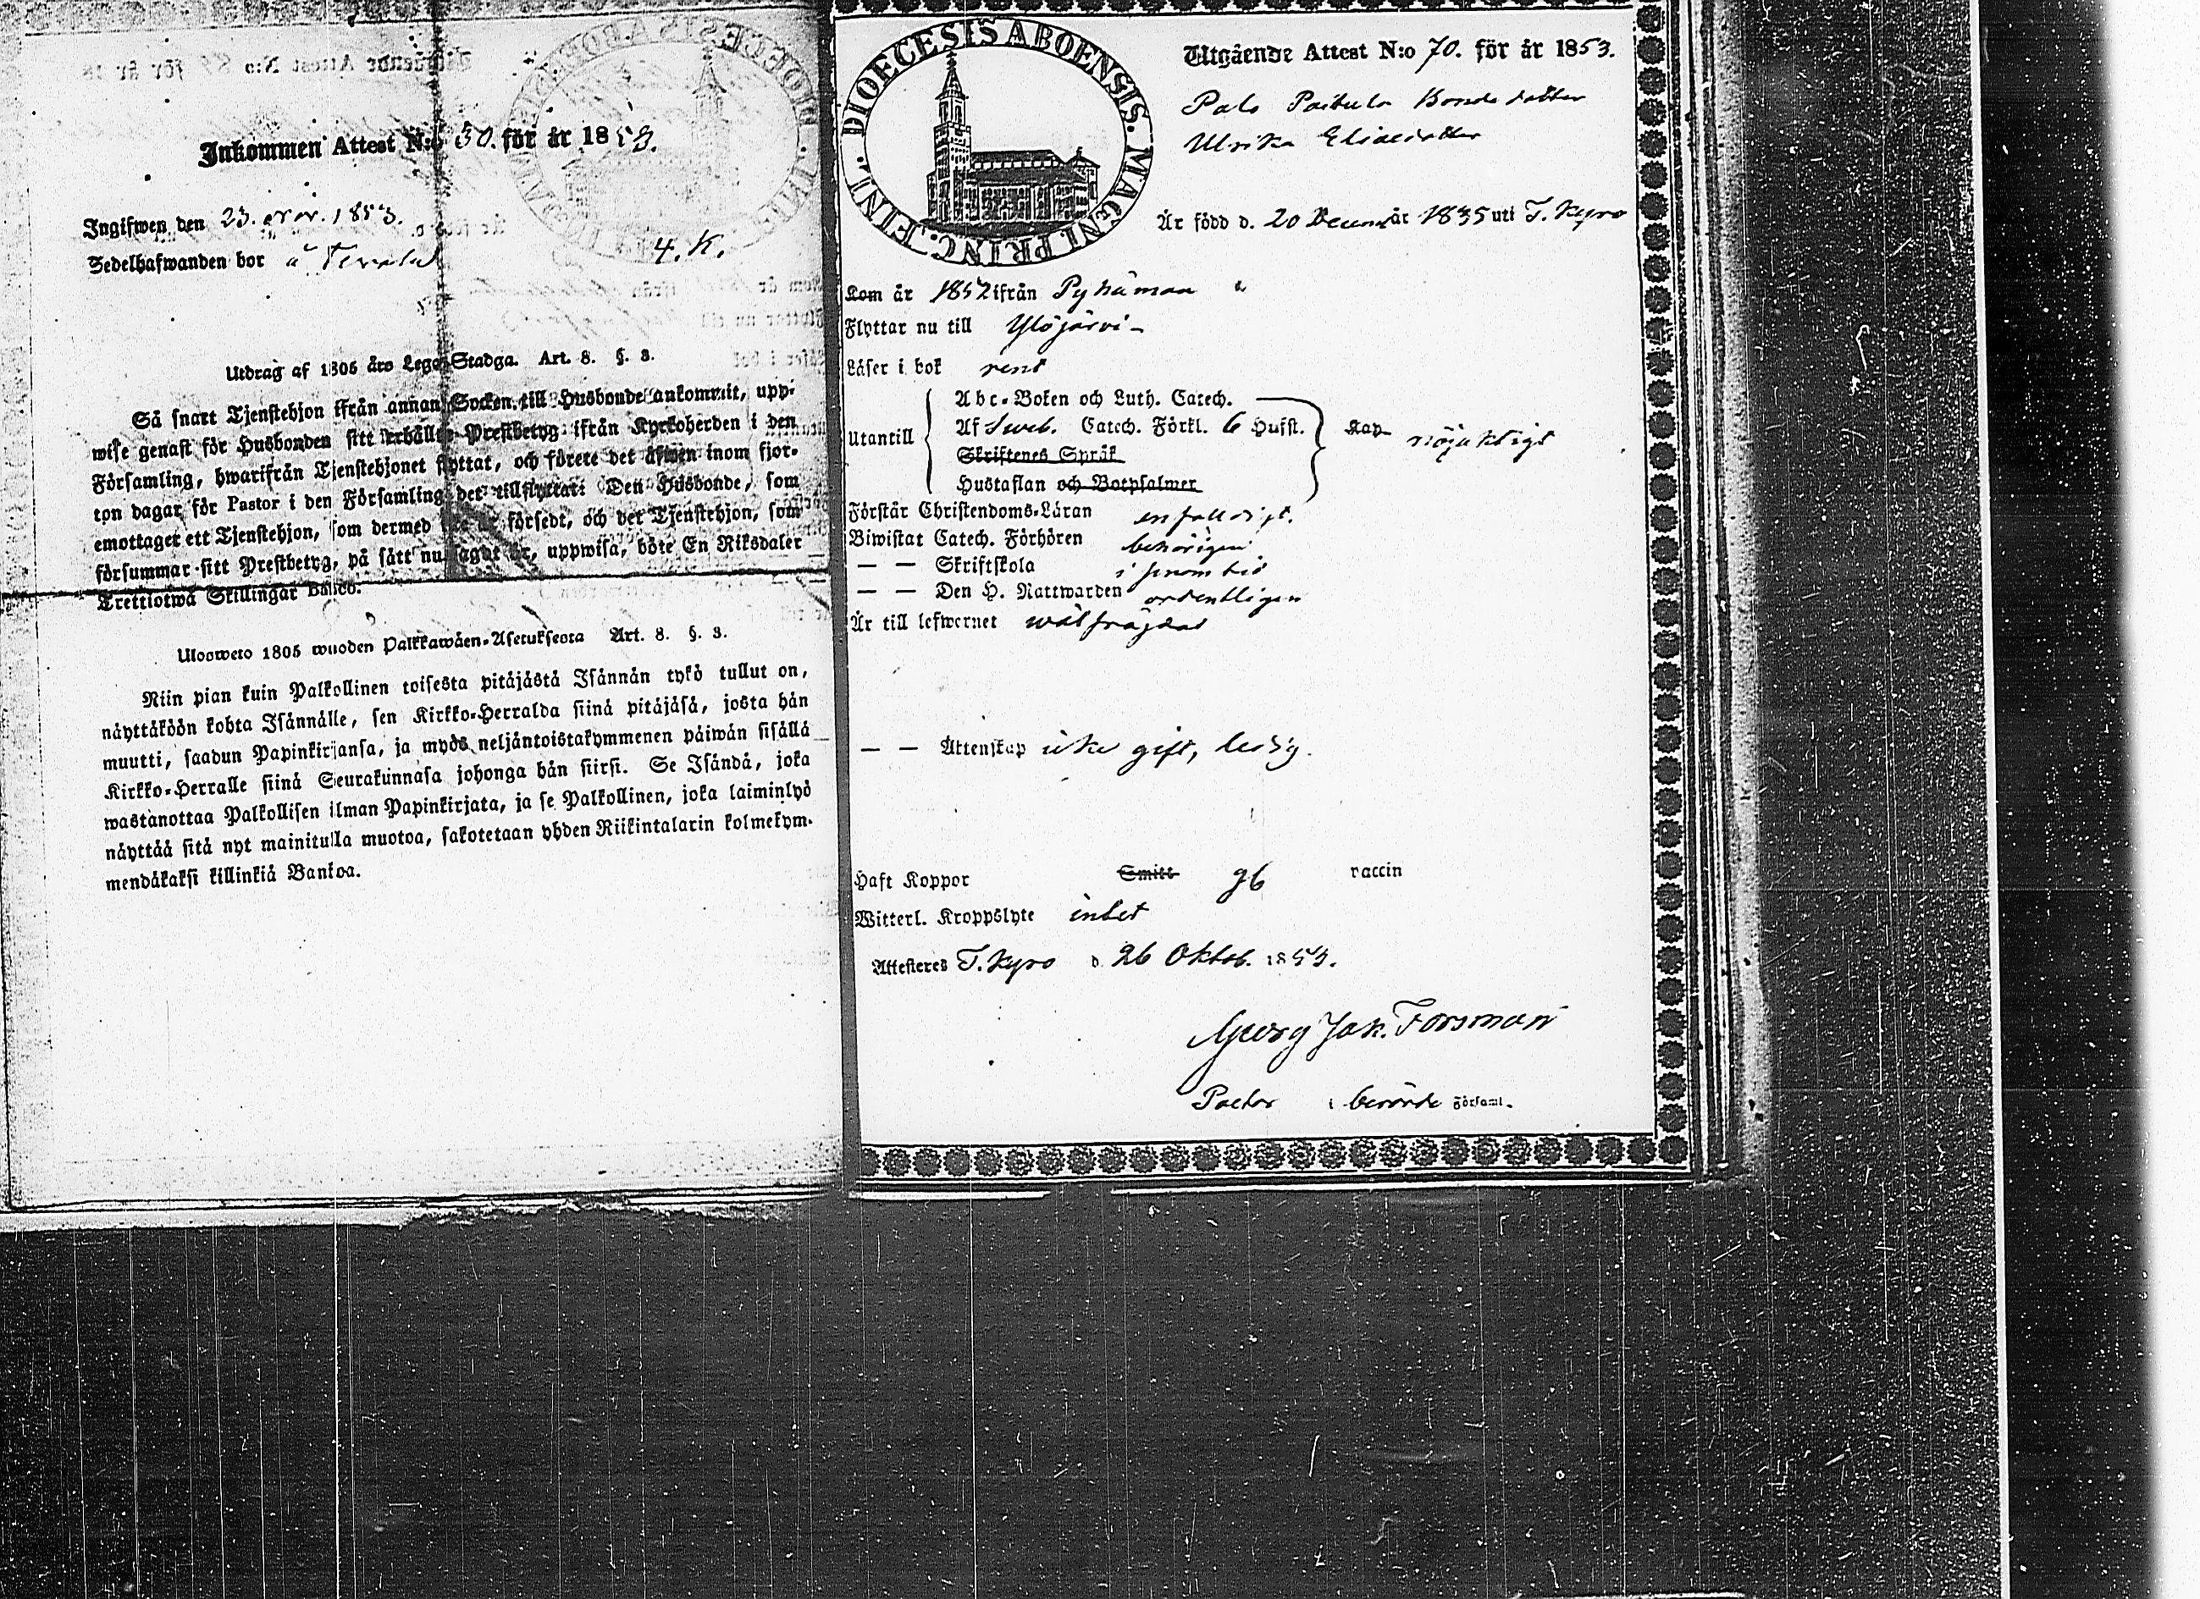 Inkommen Attest N:o 50. för år 1853.
Ingifwen den 23. nov. 1853.
Sedelhafwanden bor å
4. K.
Utdrag af 1805 års Lego-Stadga. Art. 8. §. 3.
Så snart Tjenstehjon ifrån annan Socken till Husbonde ankommit, upp-
wise genast för Husbonden sitt erhållna Prestbetyg ifrån Kyrkoherden i den
Församling, hwarifrån Tjenstehjonet flyttat, och förete det äfwen inom fjor-
ton dagar för Pastor i den Församling det tillflyttat: Den Husbonde, som
emottager ett Tjenstehjon, som dermed försedt, och det Tjenstehjon, som
försummar sitt Prestbetyg, på sätt nu sagdt är, uppwisa, böte En Riksdaler
Trettiotwå Skillingar Banco.
Ulosweto 1805 wuoden Palkkawäen-Asetuksesta Art. 8. §. 3.
Niin pian kuin Palkollinen toisesta pitäjästä Isännän tykö tullut on,
näyttäköön kohta Isännälle, sen Kirkko-Herralda siinä pitäjäsä, josta hän
muutti, saadun Papinkirjansa, ja myös neljäntoistakymmenen päiwän sisällä
Kirkko-Herralle siinä Seurakunnasa johonga hän siirsi. Se Isändä, joka
wastanottaa Palkollisen ilman Papinkirjata, ja se Palkollinen, joka laiminlyö
näyttää sitä nyt mainitulla muotoa, sakotetaan yhden Riikintalarin kolmekym-
mendäkaksi killinkiä Bankoa.
DIOECESIS ABOENSIS. MAGNI. PRINC. FINL.
Utgående Attest N:o 70. för år 1853.
Palo Paitula Bonde dotter
Ulrika Eliaedotter
Är född d. 20 Decem år 1835 uti T. Kyro
Kom år 1852 ifrån Pyhämaa
Flyttar nu till Ylöjärvi
Läser i bok rent
Utantill
Abc-Boken och Luth. Catech.
Af Sweb. Catech. Förkl. 6 Hufst. Kap nöjaktigt
Skriftenes Språk
Hustaflan och Botpsalmer
Förstår Christendoms-Läran enfaldigt.
Biwistat Catech. Förhören behörigen
— — Skriftskola i sinom tid
— — Den H. Nattwarden ordentligen
Är till lefwernet wälfrägdad
— — Ägtenskap icke gift, ledig.
Haft Koppor Smitt gb vaccin
Witterl. Kroppslyte intet
Attesteres T. Kyro d. 26 Oktob. 1853.
Georg Jak. Forsman
Pastor i berörde Församl.